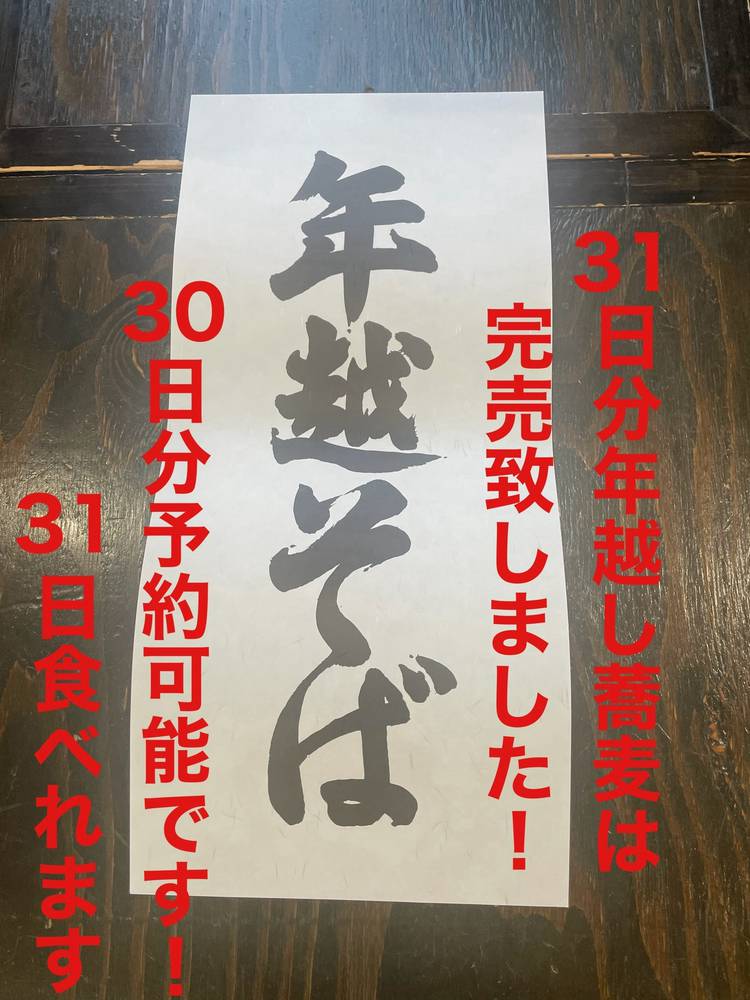 31日分年越し蕎麦は
完売致しました！
年越そば
30日分予約可能です！
31日食べれます